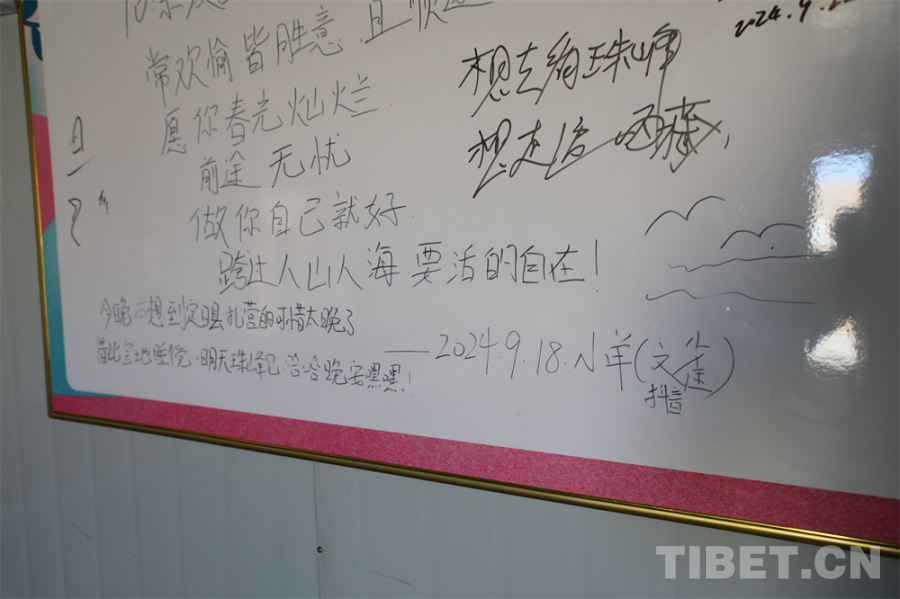 常欢愉皆胜意 且顺遂
愿你春光灿烂
前途无忧
做你自己就好
跨过人山人海 要活的自在！
今晚本想到定日县扎营的可惜太晚了
借此宝地睡觉，明天珠峰见，哈哈晚安嘿嘿！
——2024.9.18.小羊(文金)
抖音
2024.9.22
想去绚珠峰
想走治西藏，
TIBET.CN